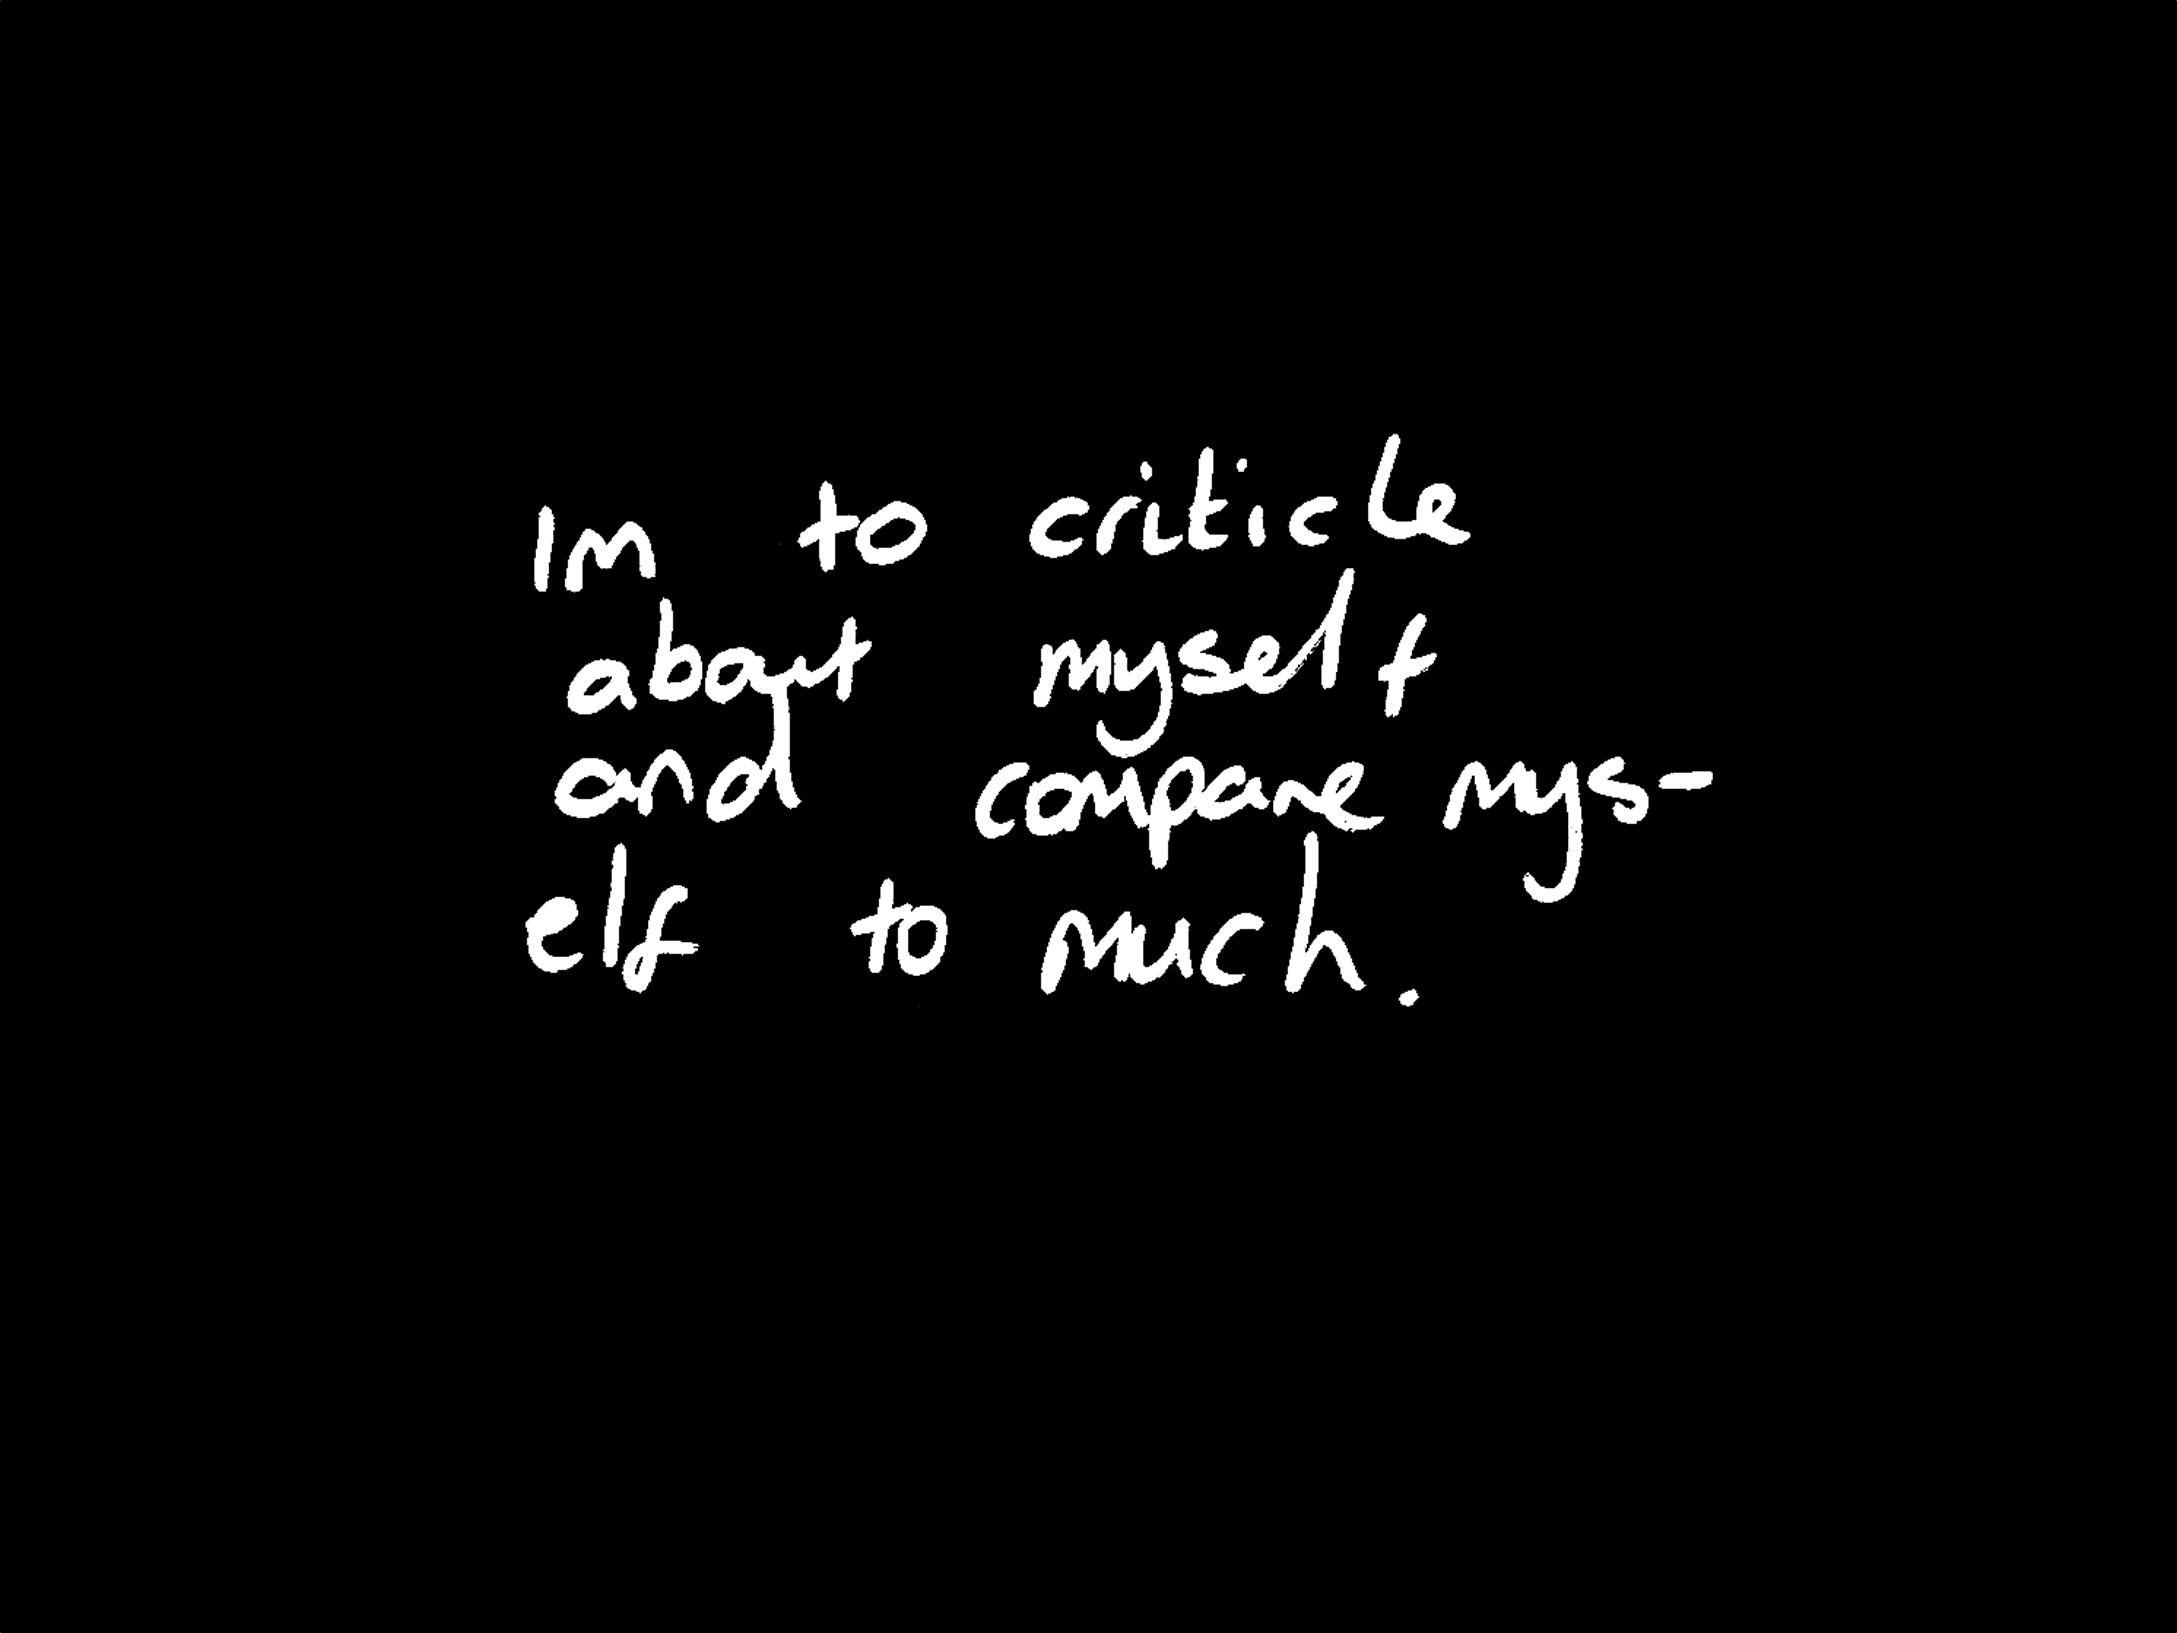 Im to criticle
about myself
and compare mys-
elf to much.